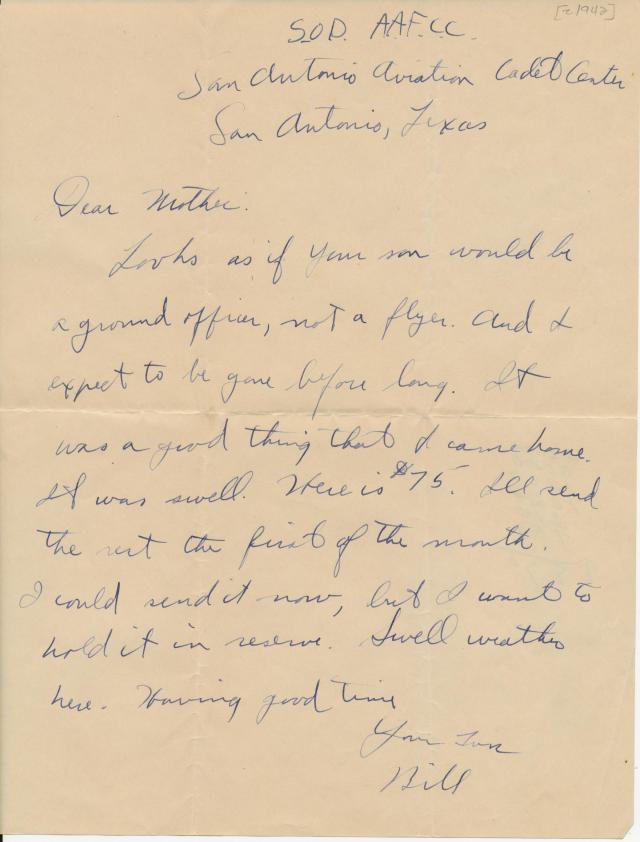 [c1942]
S.O.D. A.A.F.C.C.
San Antonio Aviation Cadet Center
San Antonio, Texas
Dear Mother:
Looks as if your son would be
a ground officer, not a flyer. And I
expect to be gone before long. It
was a good thing that I came home.
It was swell. Here is $75. I'll send
the rest the first of the month.
I could send it now, but I want to
hold it in reserve. Swell weather
here. Having good time
Your son
Bill